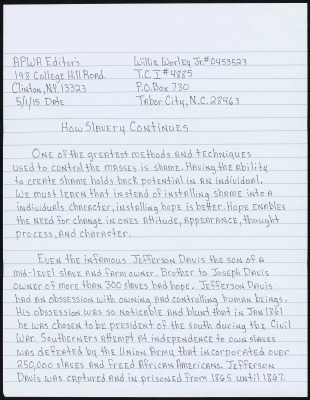 APWA Editor's
198 College Hill Road
Clinton, N.Y. 13323
5/1/15 Date
Willie Worley Jr. #0453523
T.C.I #4885
P.O. Box 730
Tabor City, N.C. 28463
How Slavery Continues
One of the greatest methods and techniques
used to control the masses is shame. Having the ability
to create shame holds back potential in an individual.
We must learn that instead of installing shame into a
individuals character, installing hope is better. Hope enables
the need for change in ones attitude, appearance, thought
process, and character.
Even the infamous Jefferson Davis the son of a
mid-level slave and farm owner. Brother to Joseph Davis
owner of more than 300 slaves had hope. Jefferson Davis
had an obssession with owning and controlling human beings.
His obssession was so noticable and blunt that in Jan 1861
he was chosen to be president of the south during the Civil
War. Southerners attempt at independence to own slaves
was defeated by the Union Army that incorporated over
250,000 slaves and freed African Americans. Jefferson
Davis was captured and in prisoned from 1865 until 1867.